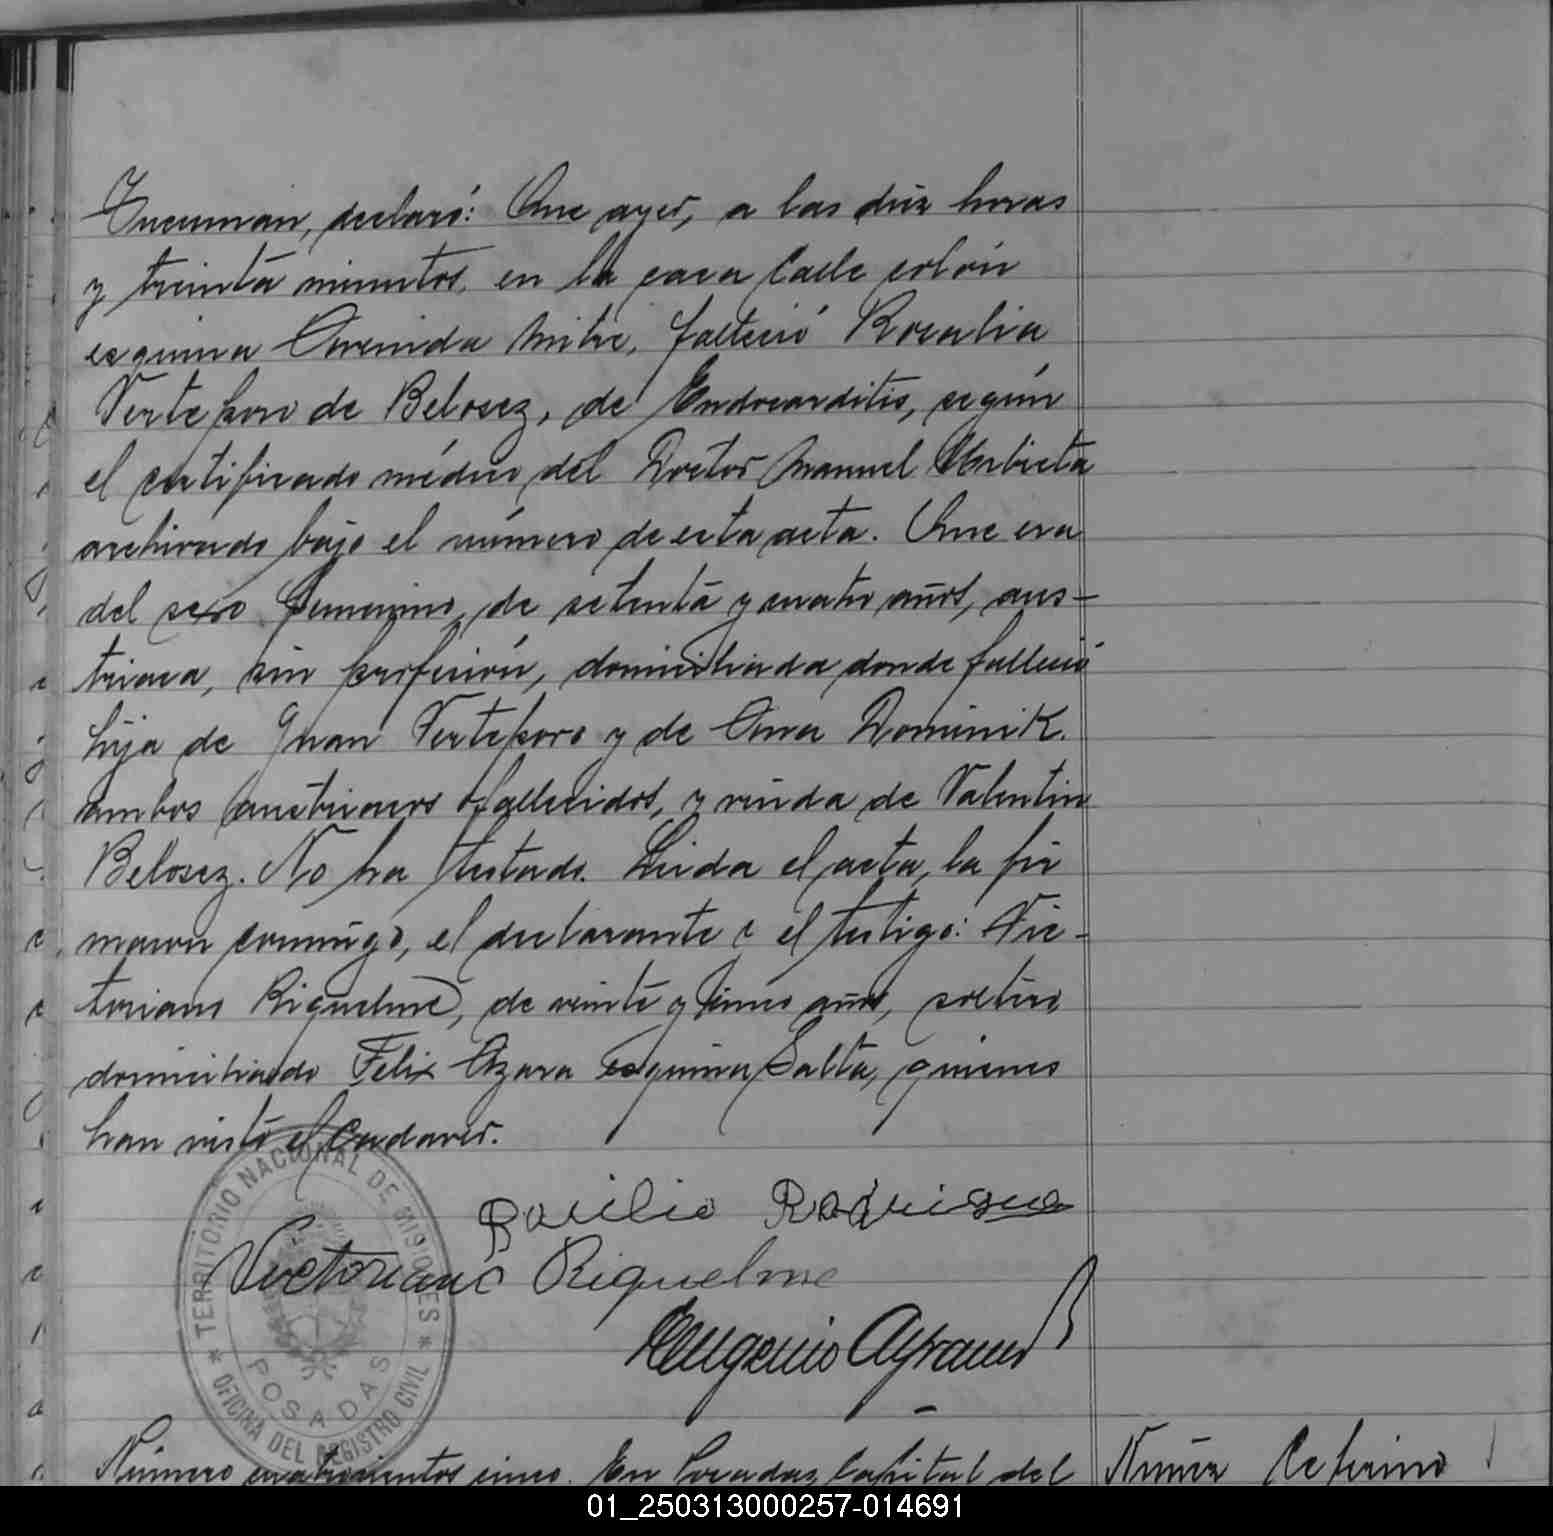 Tucuman, declaró: Que ayer, a las diez horas
y treinta minutos, en la casa Calle colón
esquina Avenida Mitre, falleció Rosalia
Verteporo de Belosez, de Endocarditis, según
el certificado médico del Doctor Manuel Urbieta
archivado bajo el número de esta acta. Que era
del sexo femenino, de setenta y cuatro años, aus-
triaca, sin profesión, domiciliada donde falleció
hija de Juan Verteporo y de Ana Dominik.
ambos austriacos fallecidos, y viuda de Valentin
Belosez. No ha testado. Leida el acta, la fir
maron conmigo, el declarante e el testigo: Vic-
toriano Riquelme, de veinte y cinco años, soltero,
domiciliado Felix Azara esquina Salta, quienes
han visto el cadaver.
Basilio Rodrigue
Victoriano Riquelme
Eugenio
TERRITORIO NACIONAL DE MISIONES
* OFICINA DEL REGISTRO CIVIL *
POSADAS
Número cuatrocientos cinco. En Posadas, Capital del
Nuñez Ceferino
01_250313000257-014691